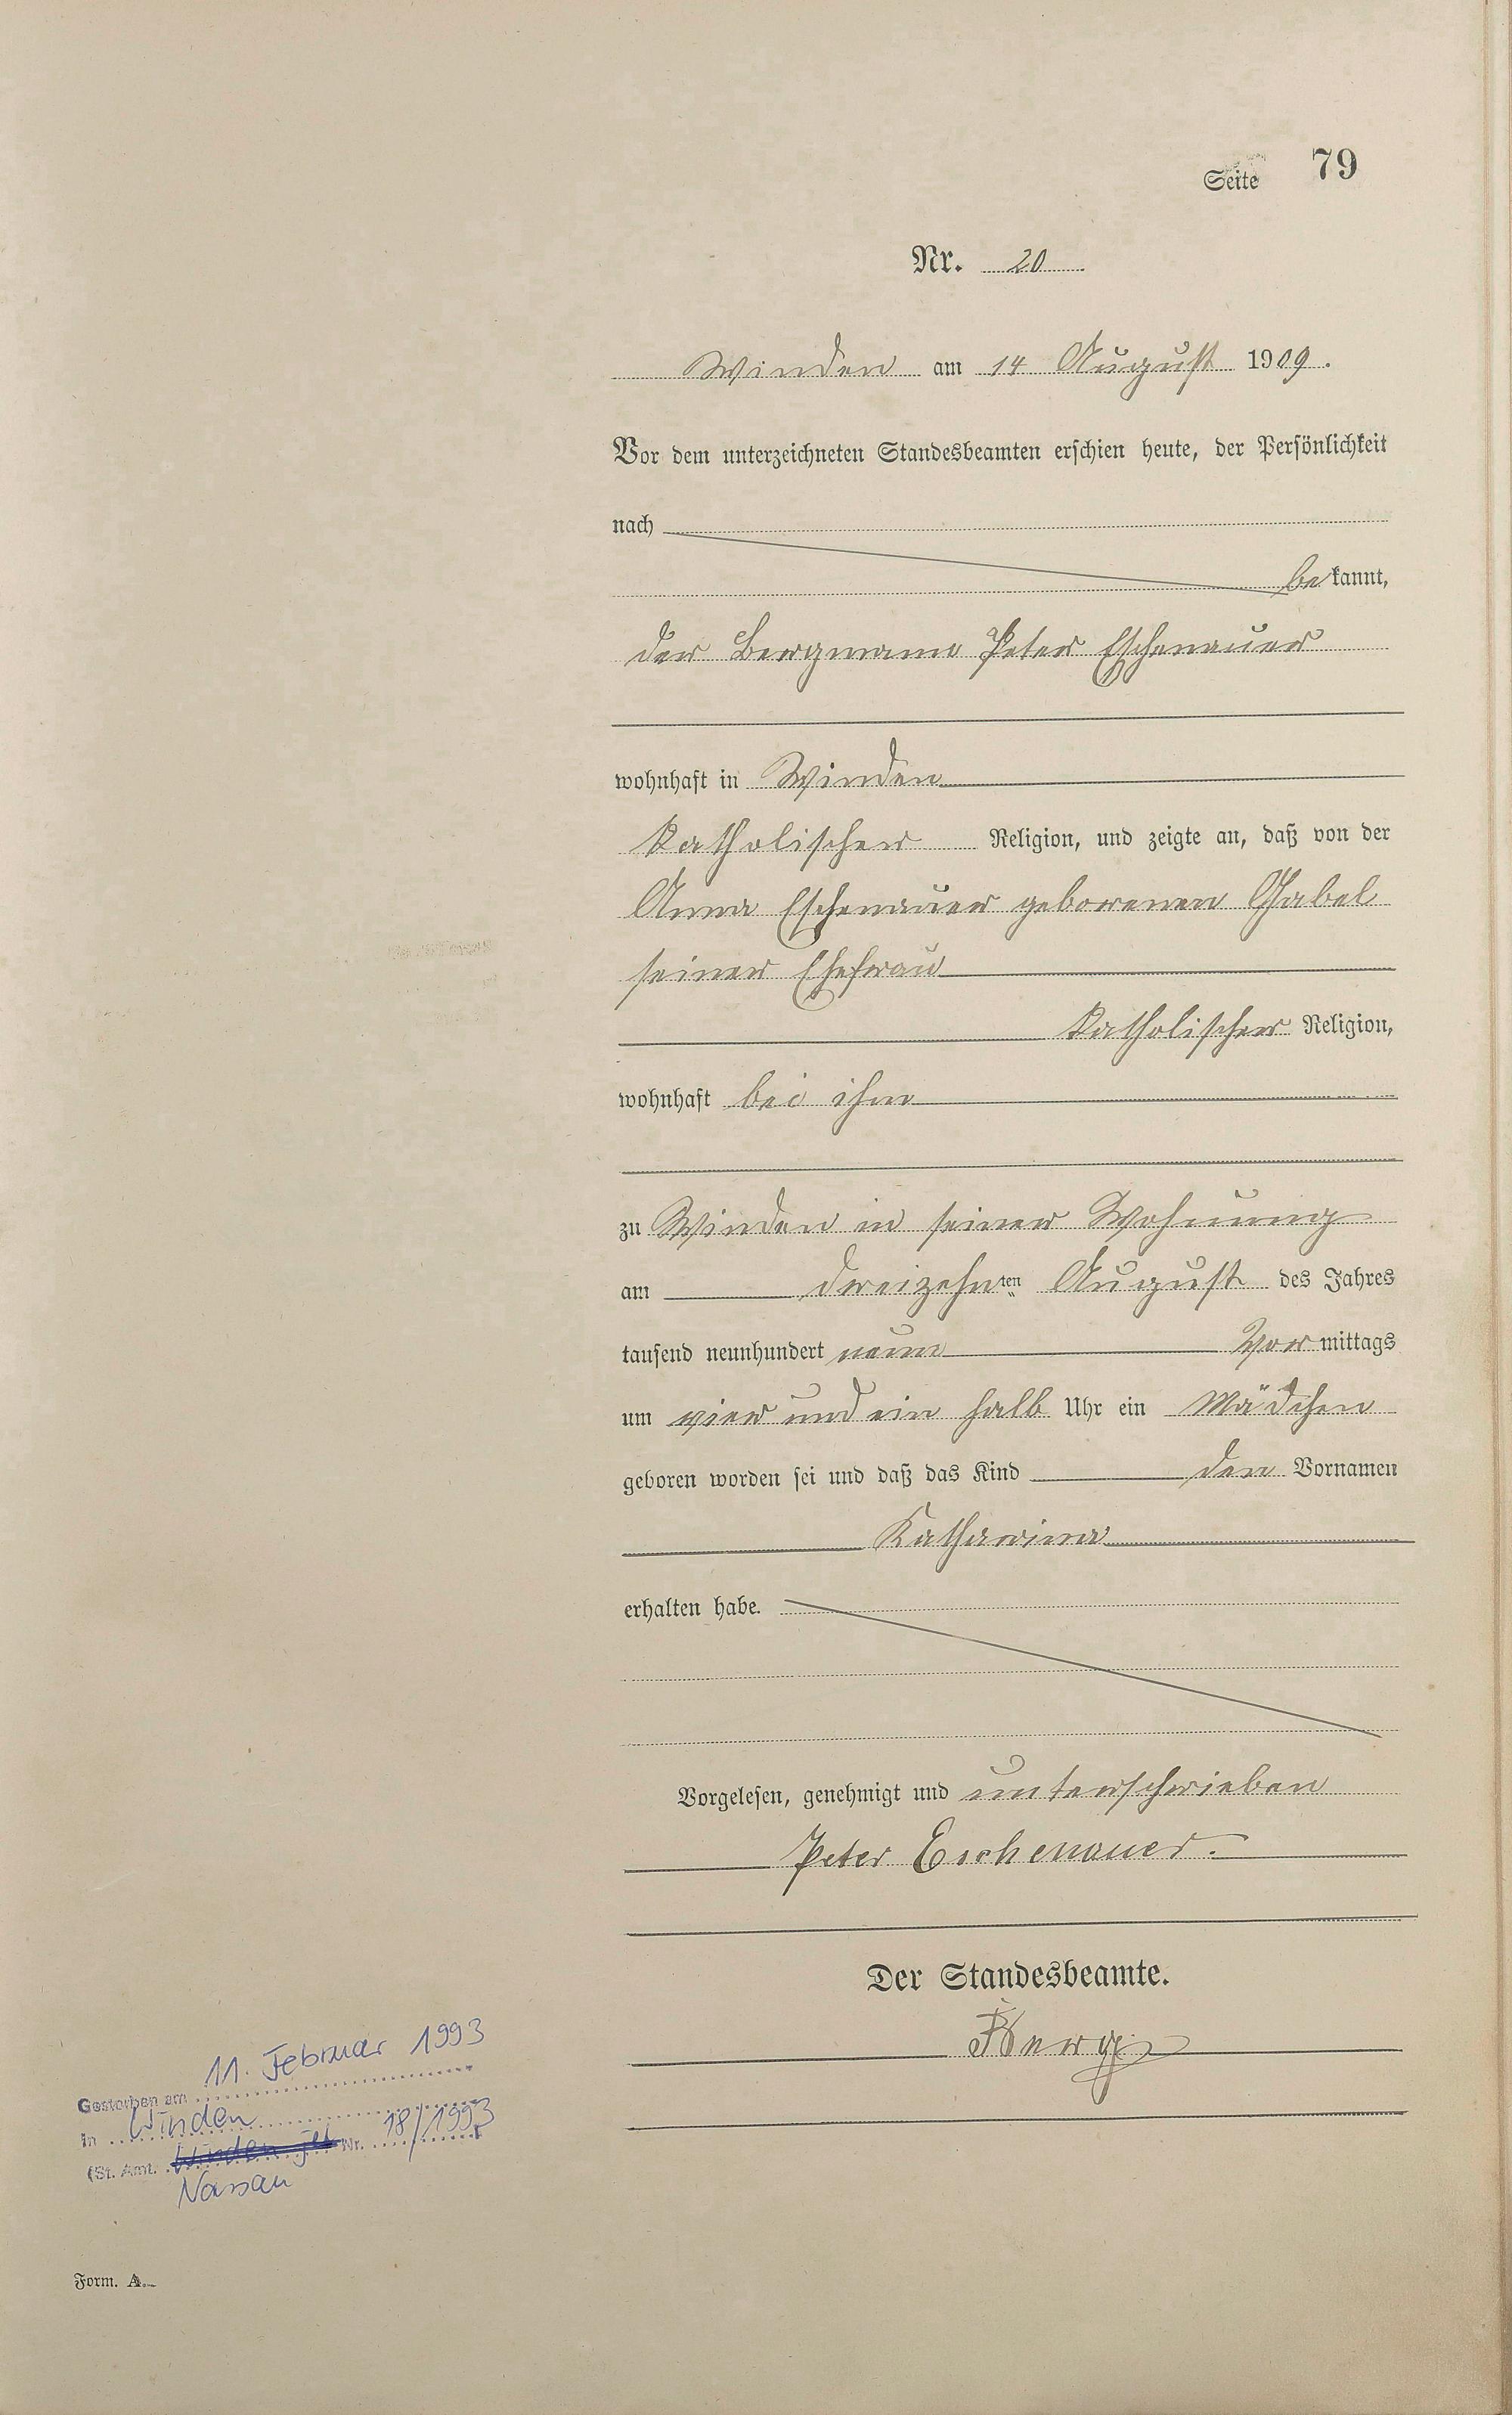 Seite 79
Nr. 20
Winden am 14 August 1909.
Vor dem unterzeichneten Standesbeamten erschien heute, der Persönlichkeit
nach
be kannt,
der Bergmann Peter Eschenauer
wohnhaft in Winden
katholischer Religion, und zeigte an, daß von der
Anna Eschenauer geborenen Gabel
seiner Ehefrau
katholischer Religion,
wohnhaft bei ihm
zu Winden in seiner Wohnung
am dreizehnten August des Jahres
tausend neunhundert neun Vor mittags
um vier und ein halb Uhr ein Mädchen
geboren worden sei und daß das Kind den Vornamen
Katharina
erhalten habe.
Vorgelesen, genehmigt und unterschrieben
Peter Eschenauer.
Der Standesbeamte.
Gestorben am 11. Februar 1993
in Winden
(St. Amt. Winden Nr. 18/1993
Nassau
Form. A.